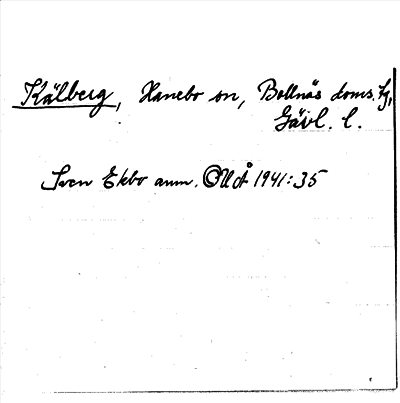 Kälberg, Hanebo sn, Bollnäs doms. tg,
Gävl. l.
Sven Ekbo anm. OUÅ 1941:35